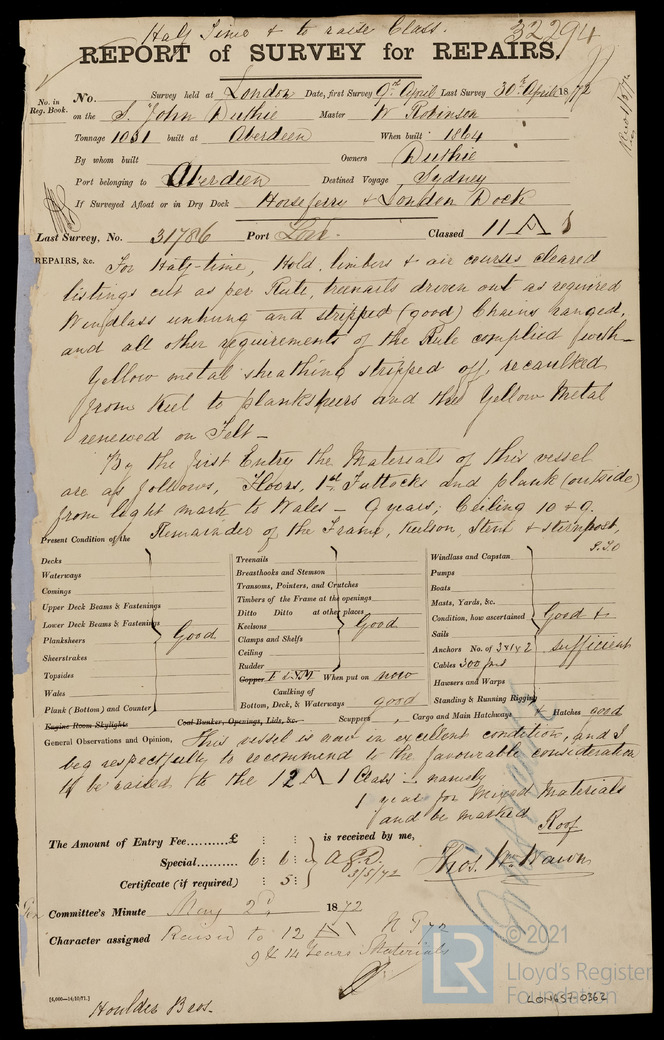 Half Time & to raise Class.
32294
REPORT of SURVEY for REPAIRS.
No. in Reg. Book.
No. Survey held at London Date, first Survey 9th April Last Survey 30th April 1872
on the S. John Duthie Master W Robinson
Tonnage 1031 built at Aberdeen When built 1864
By whom built Owners Duthie
Port belonging to Aberdeen Destined Voyage Sydney
If Surveyed Afloat or in Dry Dock Horseferry & London Dock
Last Survey, No. 31786 Port Lon. Classed 11 A 1
REPAIRS, &c. For Half-time, Hold, limbers & air courses cleared
listings cut as per Rule, treenails driven out as required
Windlass unhung and stripped (good) Chains ranged,
and all other requirements of the Rule complied with—
Yellow metal sheathing stripped off, recaulked
from Keel to planksheers and the Yellow Metal
renewed on Felt—
By the first Entry the Materials of this vessel
are as follows, Floors, 1st Futtocks and plank (outside)
from light mark to Wales— 9 years; Ceiling 10 & 9.
Remainder of the Frame, Keelson, Stem & Sternpost,
P.T.O
Present Condition of the
Decks
Waterways
Comings
Upper Deck Beams & Fastenings
Lower Deck Beams & Fastenings
Planksheers
Sheerstrakes
Topsides
Wales
Plank (Bottom) and Counter
Good
Treenails
Breasthooks and Stemson
Transoms, Pointers, and Crutches
Timbers of the Frame at the openings
Ditto Ditto at other places
Keelsons
Clamps and Shelfs
Ceiling
Rudder
Good
Copper When put on now
Caulking of
Bottom, Deck, & Waterways good
Windlass and Capstan
Pumps
Boats
Masts, Yards, &c.
Condition, how ascertained
Sails
Anchors No. of 3 & 1 & 2
Cables 300 fms
Hawsers and Warps
Standing & Running Rigging
Good &
sufficient
Engine Room Skylights Coal Bunker, Openings, Lids, &c. Scuppers, Cargo and Main Hatchways & Hatches good
General Observations and Opinion, This vessel is now in excellent condition, and I
beg respectfully to recommend to the favourable consideration
to be raised to the 12 A 1 Class:— namely
1 year for Mixed Materials
and be marked
Roof
The Amount of Entry Fee..........£ : : is received by me,
Special.......... 6 : 6 :
Certificate (if required) : 5 :
3/5/72
Thos. W. Wawn
Committee's Minute May 3d 1872
Character assigned Raised to 12 A
9 & 14 Years Materials
[4,000—14/10/71.]
Houlder Bros.
© 2021
LR
Lloyd's Register
Foundation
LON657-0362